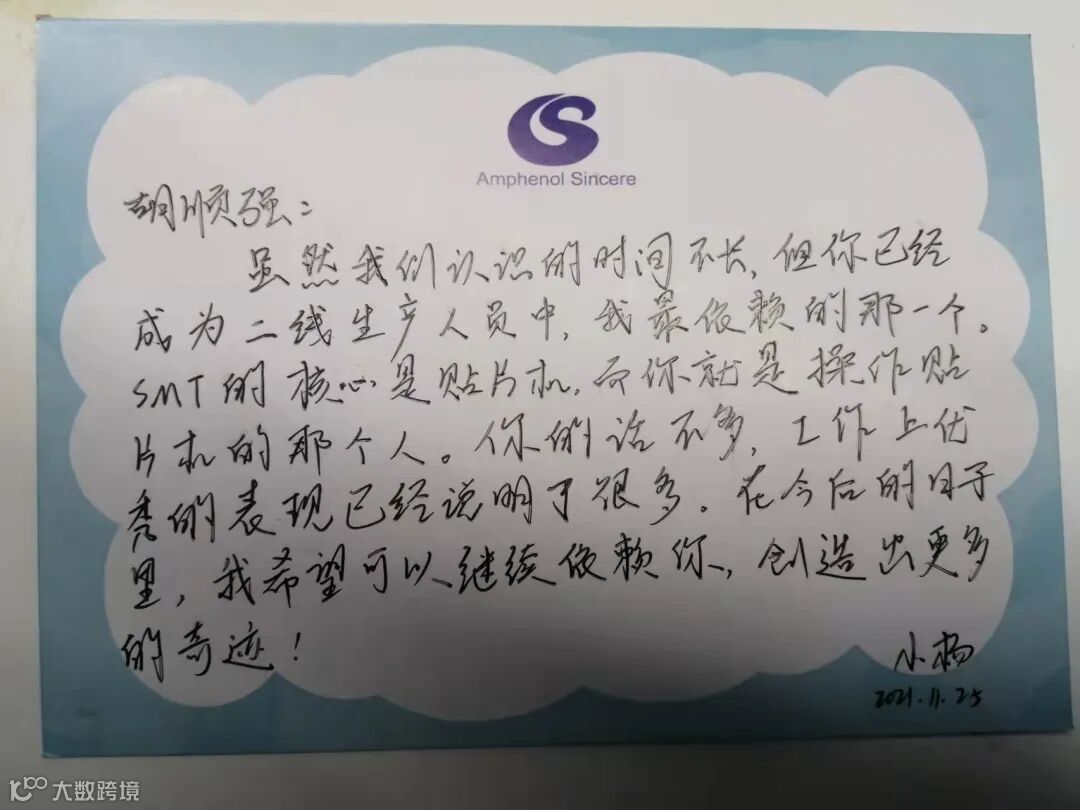 Amphenol Sincere
胡顺强：
虽然我们认识的时间不长，但你已经
成为二线生产人员中，我最依赖的那一个。
SMT的核心是贴片机，而你就是操作贴
片机的那个人。你的话不多，工作上优
秀的表现已经说明了很多。在今后的日子
里，我希望可以继续依赖你，创造出更多
的奇迹！
小杨
2021.11.25
大数跨境